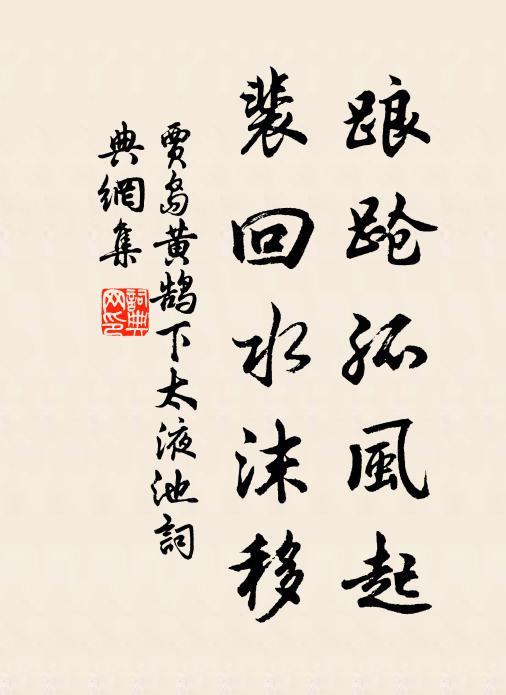 踉蹌孤風起
裴回水沫移
賈島黃鵠下太液池詞
典網集
詞典網印